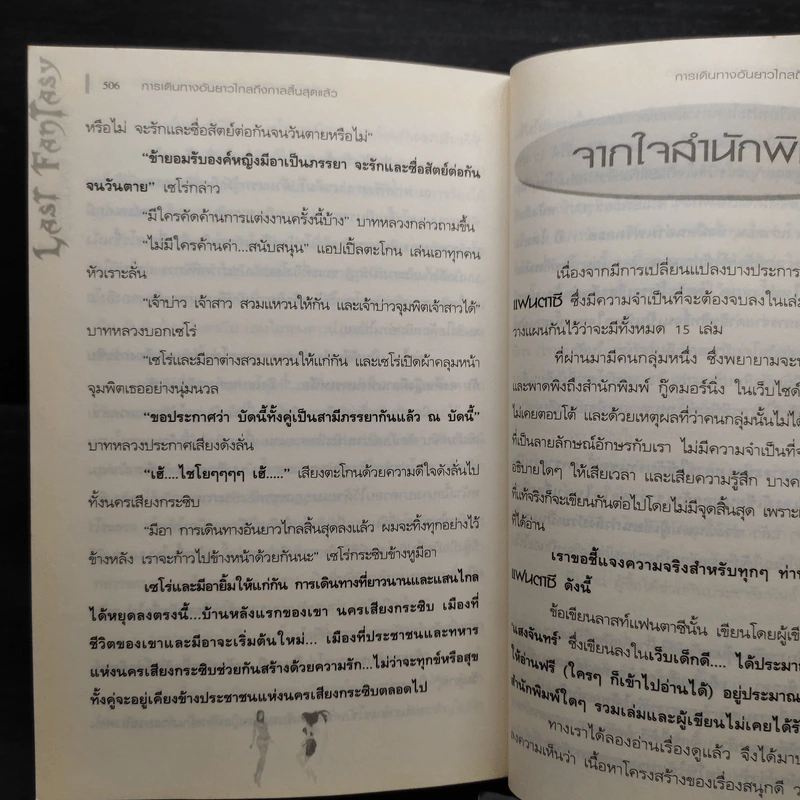 Last Fantasy
506 การเดินทางอันยาวไกลถึงกาลสิ้นสุดแล้ว
หรือไม่ จะรักและซื่อสัตย์ต่อกันจนวันตายหรือไม่"
"ข้ายอมรับองค์หญิงมีอาเป็นภรรยา จะรักและซื่อสัตย์ต่อกัน
จนวันตาย" เซโร่กล่าว
"มีใครคัดค้านการแต่งงานครั้งนี้บ้าง" บาทหลวงกล่าวถามขึ้น
"ไม่มีใครค้านค่า...สนับสนุน" แอปเปิ้ลตะโกน เล่นเอาทุกคน
หัวเราะลั่น
"เจ้าบ่าว เจ้าสาว สวมแหวนให้กัน และเจ้าบ่าวจุมพิตเจ้าสาวได้"
บาทหลวงบอกเซโร่
"เซโร่และมีอาต่างสวมแหวนให้แก่กัน และเซโร่เปิดผ้าคลุมหน้า
จุมพิตเธออย่างนุ่มนวล
"ขอประกาศว่า บัดนี้ทั้งคู่เป็นสามีภรรยากันแล้ว ณ บัดนี้"
บาทหลวงประกาศเสียงดังลั่น
"เฮ้....ไชโยๆๆๆๆ เฮ้....." เสียงตะโกนด้วยความดีใจดังลั่นไป
ทั้งนครเสียงกระซิบ
"มีอา การเดินทางอันยาวไกลสิ้นสุดลงแล้ว ผมจะทิ้งทุกอย่างไว้
ข้างหลัง เราจะก้าวไปข้างหน้าด้วยกันนะ" เซโร่กระซิบข้างหูมีอา
เซโร่และมีอายิ้มให้แก่กัน การเดินทางที่ยาวนานและแสนไกล
ได้หยุดลงตรงนี้...บ้านหลังแรกของเขา นครเสียงกระซิบ เมืองที่
ชีวิตของเขาและมีอาจะเริ่มต้นใหม่... เมืองที่ประชาชนและทหาร
แห่งนครเสียงกระซิบช่วยกันสร้างด้วยความรัก...ไม่ว่าจะทุกข์หรือสุข
ทั้งคู่จะอยู่เคียงข้างประชาชนแห่งนครเสียงกระซิบตลอดไป
การเดินทางอันยาวไกลถึ
จากใจสำนักพิ
เนื่องจากมีการเปลี่ยนแปลงบางประการ
แฟนตาซี ซึ่งมีความจำเป็นที่จะต้องจบลงในเล่ม
วางแผนกันไว้ว่าจะมีทั้งหมด 15 เล่ม
ที่ผ่านมามีคนกลุ่มหนึ่ง ซึ่งพยายามจะ
และพาดพิงถึงสำนักพิมพ์ กู๊ดมอร์นิ่ง ในเว็บไซด์
ไม่เคยตอบโต้ และด้วยเหตุผลที่ว่าคนกลุ่มนั้นไม่ได้
ที่เป็นลายลักษณ์อักษรกับเรา ไม่มีความจำเป็นที่
อธิบายใดๆ ให้เสียเวลา และเสียความรู้สึก บาง
ที่แท้จริงก็จะเขียนกันต่อไปโดยไม่มีจุดสิ้นสุด เพราะ
ที่ได้อ่าน
เราขอชี้แจงความจริงสำหรับทุกๆ ท่าน
แฟนตาซี ดังนี้
ข้อเขียนลาสท์แฟนตาซีนั้น เขียนโดยผู้เขี
'แสงจันทร์' ซึ่งเขียนลงในเว็บเด็กดี.... ได้ประมา
ให้อ่านฟรี (ใครๆ ก็เข้าไปอ่านได้) อยู่ประมาณ
สำนักพิมพ์ใดๆ รวมเล่มและผู้เขียนไม่เคยได้รั
ทางเราได้ลองอ่านเรื่องดูแล้ว จึงได้มา
ลงความเห็นว่า เนื้อหาโครงสร้างของเรื่องสนุกดี